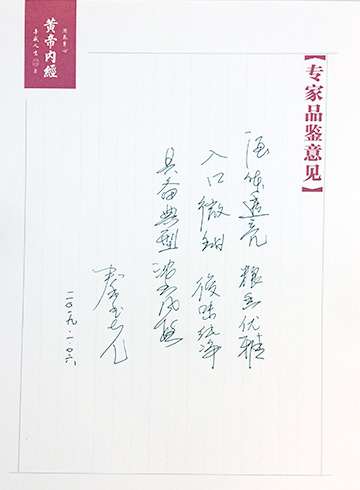 黃帝内經
【专家品鉴意见】
酒体透亮 粮香优雅
入口微甜 後味纯净
具备典型 浓香风格
二〇一九.一.〇六